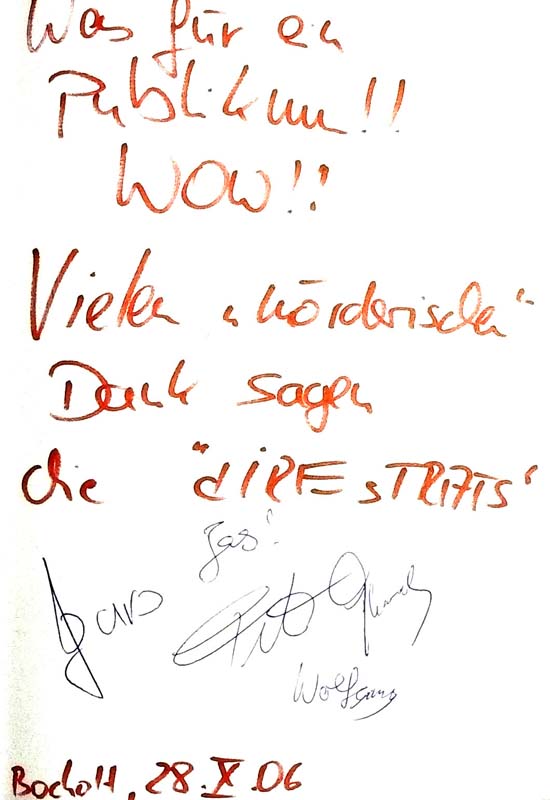 Was für ein
Publikum!!
WOW!!
Vielen „mörderischen“
Dank sagen
die "dIRE sTRATS"
Wolfgang
Bocholt, 28.X.06